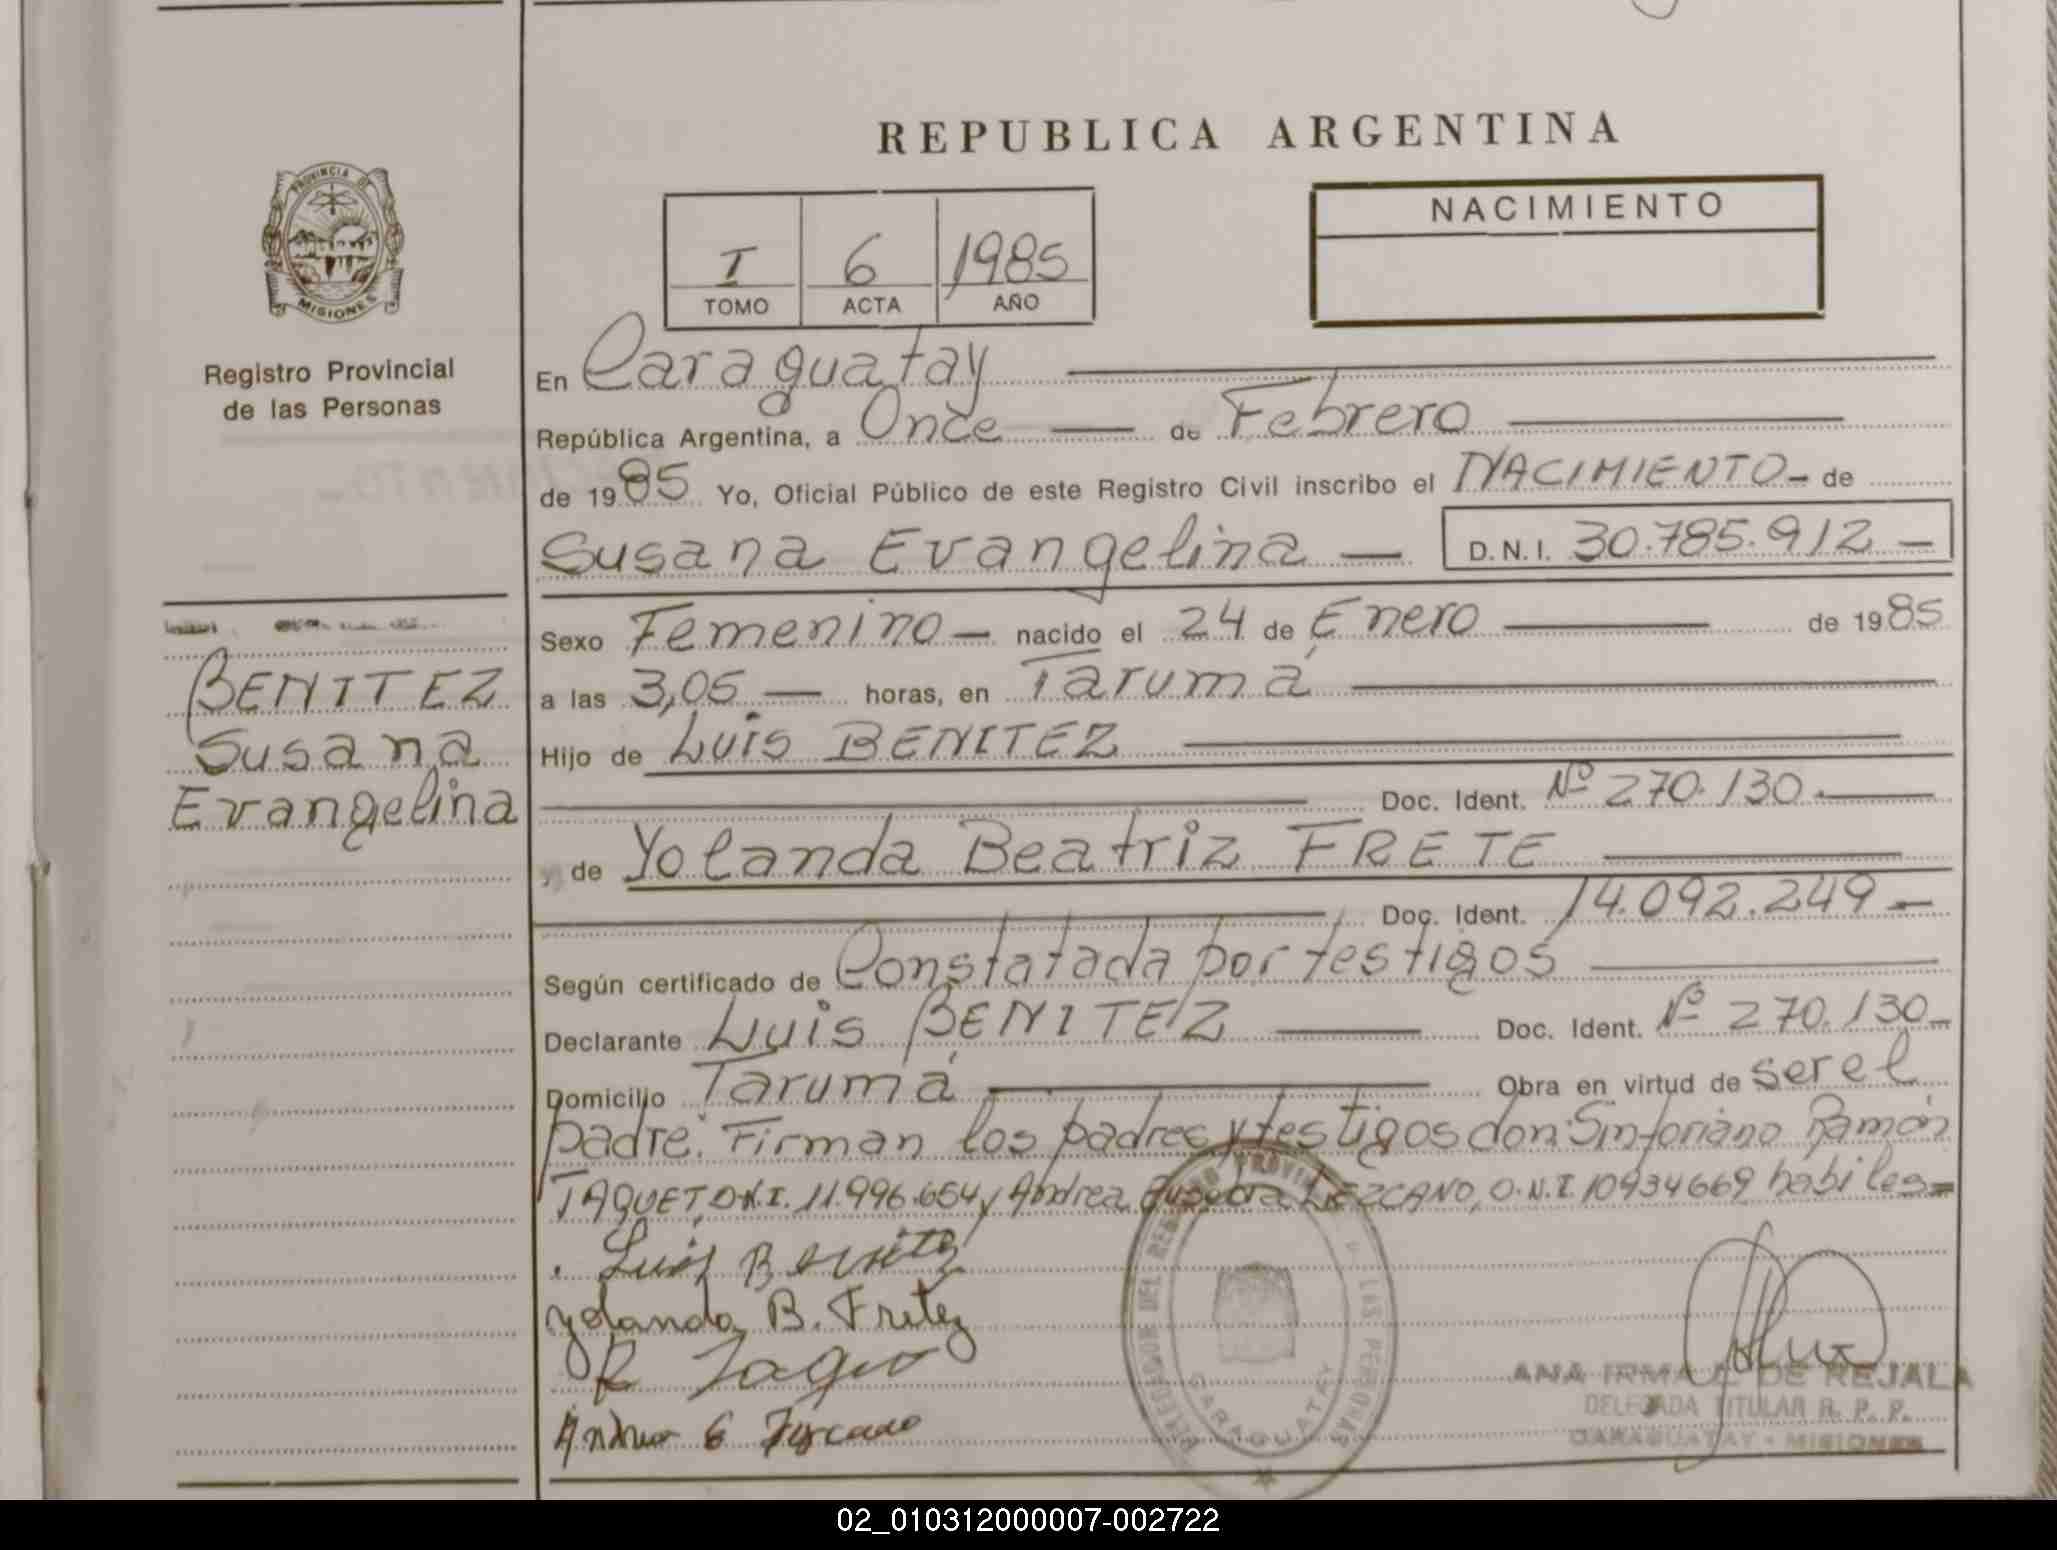 REPUBLICA ARGENTINA
PROVINCIA DE
MISIONES
Registro Provincial
de las Personas
I 6 1985
TOMO ACTA AÑO
NACIMIENTO
En Caraguatay
República Argentina, a Once de Febrero
de 1985 Yo, Oficial Público de este Registro Civil inscribo el NACIMIENTO- de
Susana Evangelina — D.N.I. 30.785.912 —
Sexo Femenino — nacido el 24 de Enero de 1985
a las 3,05 — horas, en Tarumá
Hijo de Luis BENITEZ
Doc. Ident. Nº 270.130.
y de Yolanda Beatriz FRETE
Doc. Ident. 14.092.249 —
Según certificado de Constatada por testigos
Declarante Luis BENITEZ Doc. Ident. Nº 270.130-
Domicilio Tarumá Obra en virtud de ser el
padre. Firman los padres y testigos don: Sinforiano Ramón
TAQUET, D.N.I. 11.996.654 y Andrea LEZCANO, D.N.I. 10934669 habiles=
Luis Benitez
Yolanda B. Fretez
BENITEZ
Susana
Evangelina
CARAGUATAY
ANA IRMA DE REJALA
DELEGADA TITULAR R. P. P.
CARAGUATAY - MISIONES
02_010312000007-002722